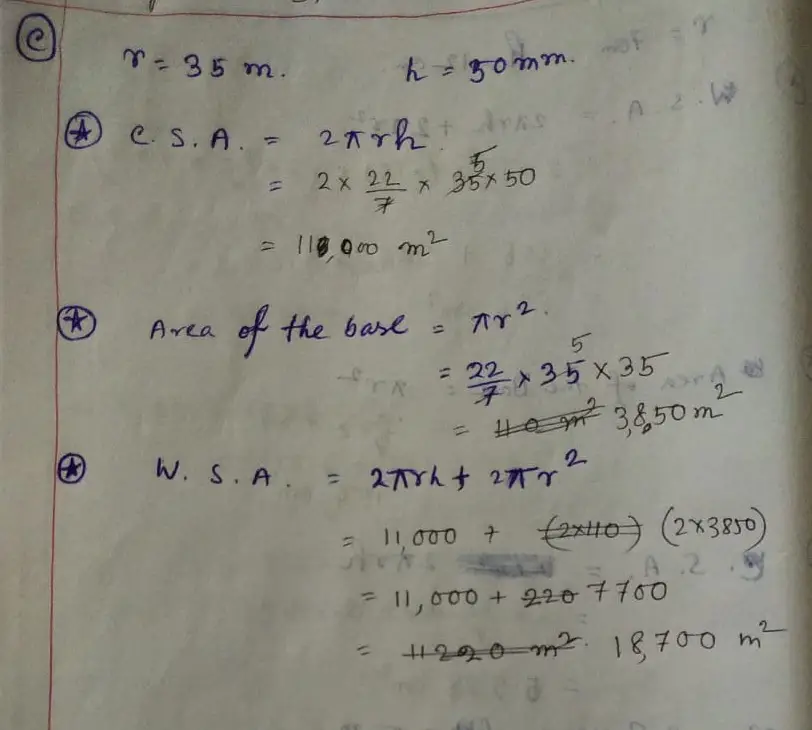 C
r = 35 m. h = 50mm.
C. S. A. = 2πrh.
= 2 × 22/7 × 35 × 50 5
= 11,000 m²
Area of the base = πr².
= 22/7 × 35 × 35 5
= 110 m² 3,850 m²
W. S. A. = 2πrh + 2πr²
= 11,000 + (2×110) (2×3850)
= 11,000 + 220 7700
= 11220 m². 18,700 m²